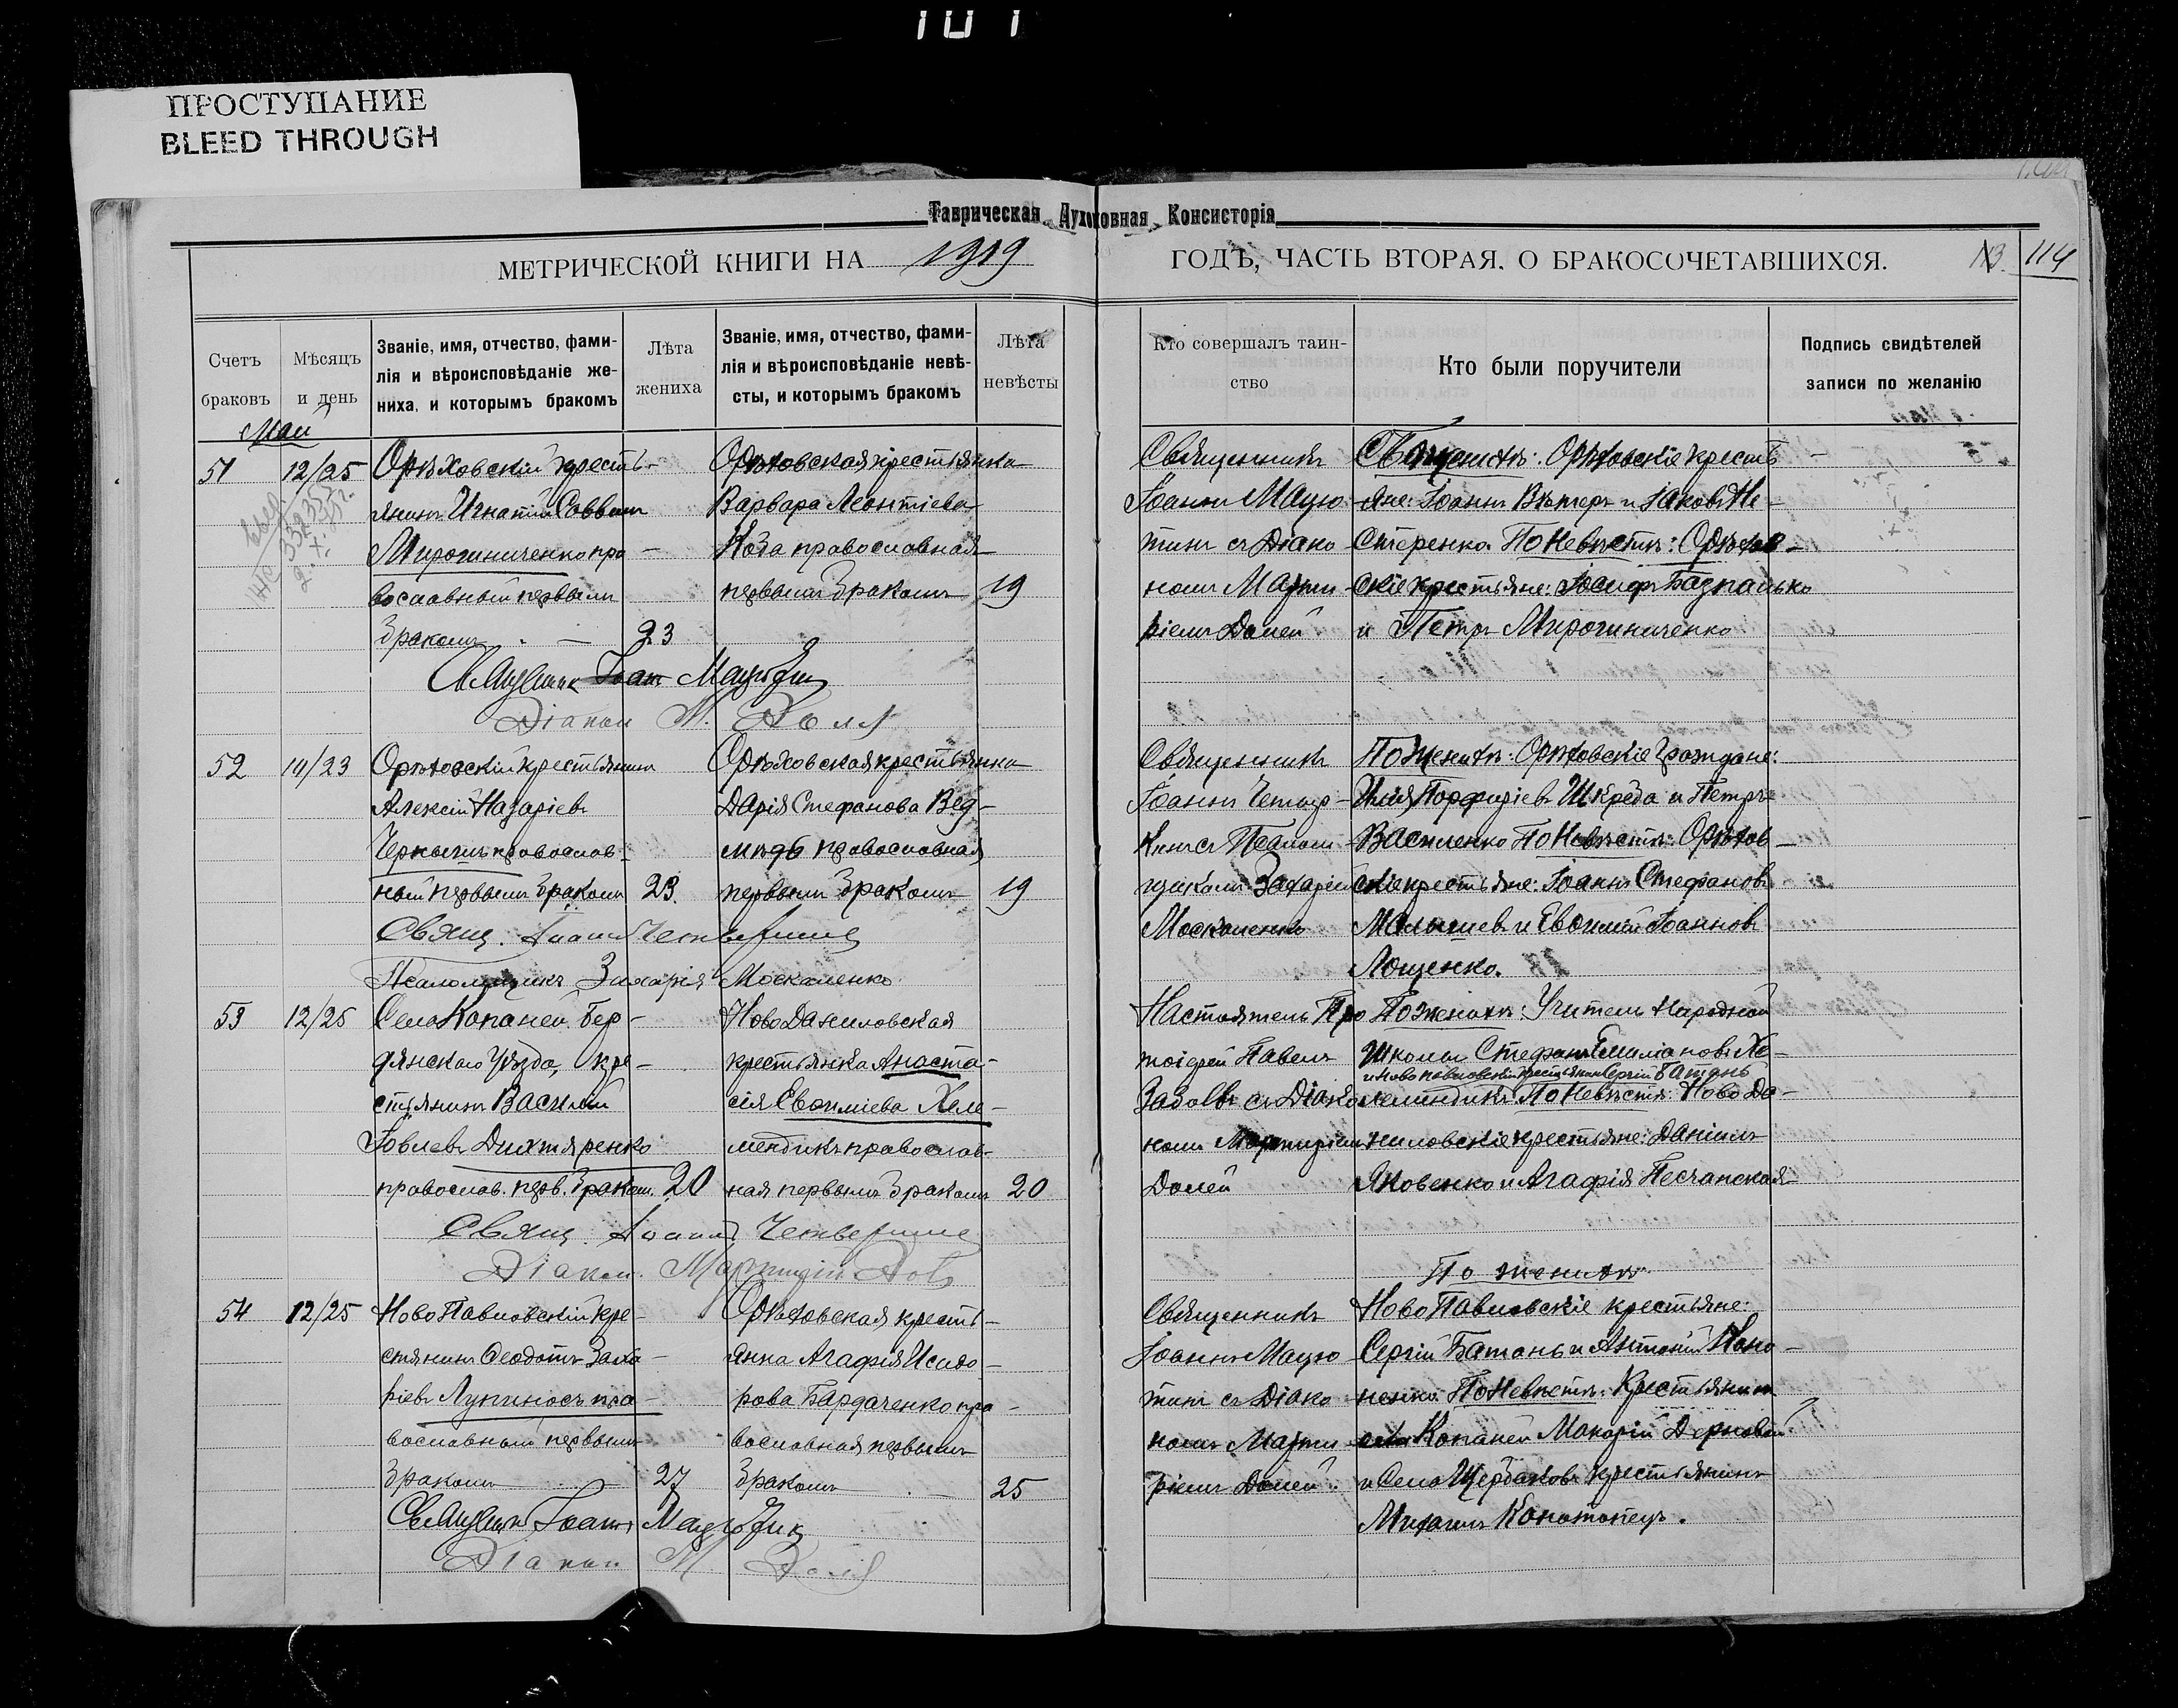 ПРОСТУПАНИЕ
BLEED THROUGH
Таврическая Духовная Консисторія
МЕТРИЧЕСКОЙ КНИГИ НА 1919
ГОДЪ, ЧАСТЬ ВТОРАЯ, О БРАКОСОЧЕТАВШИХСЯ.
113. 114
Счетъ браковъ
Мѣсяцъ и день
Званіе, имя, отчество, фами-
лія и вѣроисповѣданіе же-
ниха, и которымъ бракомъ
Лѣта жениха
Званіе, имя, отчество, фами-
лія и вѣроисповѣданіе невѣ-
сты, и которымъ бракомъ
Лѣта невѣсты
Кто совершалъ таин-
ство
Кто были поручители
Подпись свидѣтелей
записи по желанію
Май
51
12/25
Орѣховскій кресть-
янинъ Игнатій Саввинъ
Мирошниченко пра-
вославный первымъ
бракомъ
23
Орѣховская крестьянка
Варвара Леонтіева
Коза православная
первымъ бракомъ
19
Священникъ
Іоаннъ Мацю-
тинъ съ Діако-
номъ Марти-
ріемъ Долей
Орѣховскіе кресть-
яне: Іоаннъ Вѣтеръ и Іаковъ Не-
стеренко. По Невѣстѣ: Орѣхов-
скіе крестьяне: Іосифъ
и Петръ Мирошниченко
Діакон М. Доля
52
14/23
Орѣховскій крестьянинъ
Алексій Назаріевъ
Чернышъ православ-
ный первымъ бракомъ
23.
Орѣховская крестьянка
Дарія Стефанова Вед-
мѣдь православная
первымъ бракомъ
19
Священникъ
Іоаннъ
съ Псалом-
щикомъ Захаріей
Москаленко
По Женихѣ: Орѣховскіе Граждане:
Илія Порфиріевъ Шкреда и Петръ
Василенко По Невѣстѣ: Орѣхов-
скіе крестьяне: Іоаннъ Стефановъ
Малышев и Евфимій Іоанновъ
Лощенко.
Псаломщикъ Захарія Москаленко
53
12/25
Села Копаней Бер-
дянскаго Уѣзда, кре-
стьянинъ Василій
Іовлевъ Дихтяренко
православ. перв. бракомъ.
20
Ново Даниловская
крестьянка Анаста-
сія Евфиміева Хеле-
мендикъ православ-
ная первымъ бракомъ
20
Настоятель Про-
тоіерей Павелъ
съ Діако-
номъ Мартиріемъ
Долей
По Женихѣ: Учитель Народной
Школы Стефанъ Емиліановъ Хе-
и Ново Павловскій крестьянинъ Сергій Батань
лемендикъ По Невѣстѣ: Ново Да-
ниловскіе крестьяне: Даніилъ
Яковенко и Агафія Песчанская
54
12/25
Ново Павловскій кре-
стьянинъ Ѳеодотъ Заха-
ріевъ Лупиносъ пра-
вославный первымъ
бракомъ
27
Орѣховская кресть-
янка Агафія Исидо-
рова Бардаченко пра-
вославная первымъ
бракомъ
25
Священникъ
Іоаннъ Мацю-
тинъ съ Діако-
номъ Марти-
ріемъ Долей.
По женихѣ
Ново Павловскіе крестьяне:
Сергій Батань и Антоній Коно-
ненко. По Невѣстѣ: Крестьянинъ
Копаней Макарій Дерновой
и Села Щербаковъ крестьянинъ
Михаилъ Конотопецъ.
Діакон М Доля